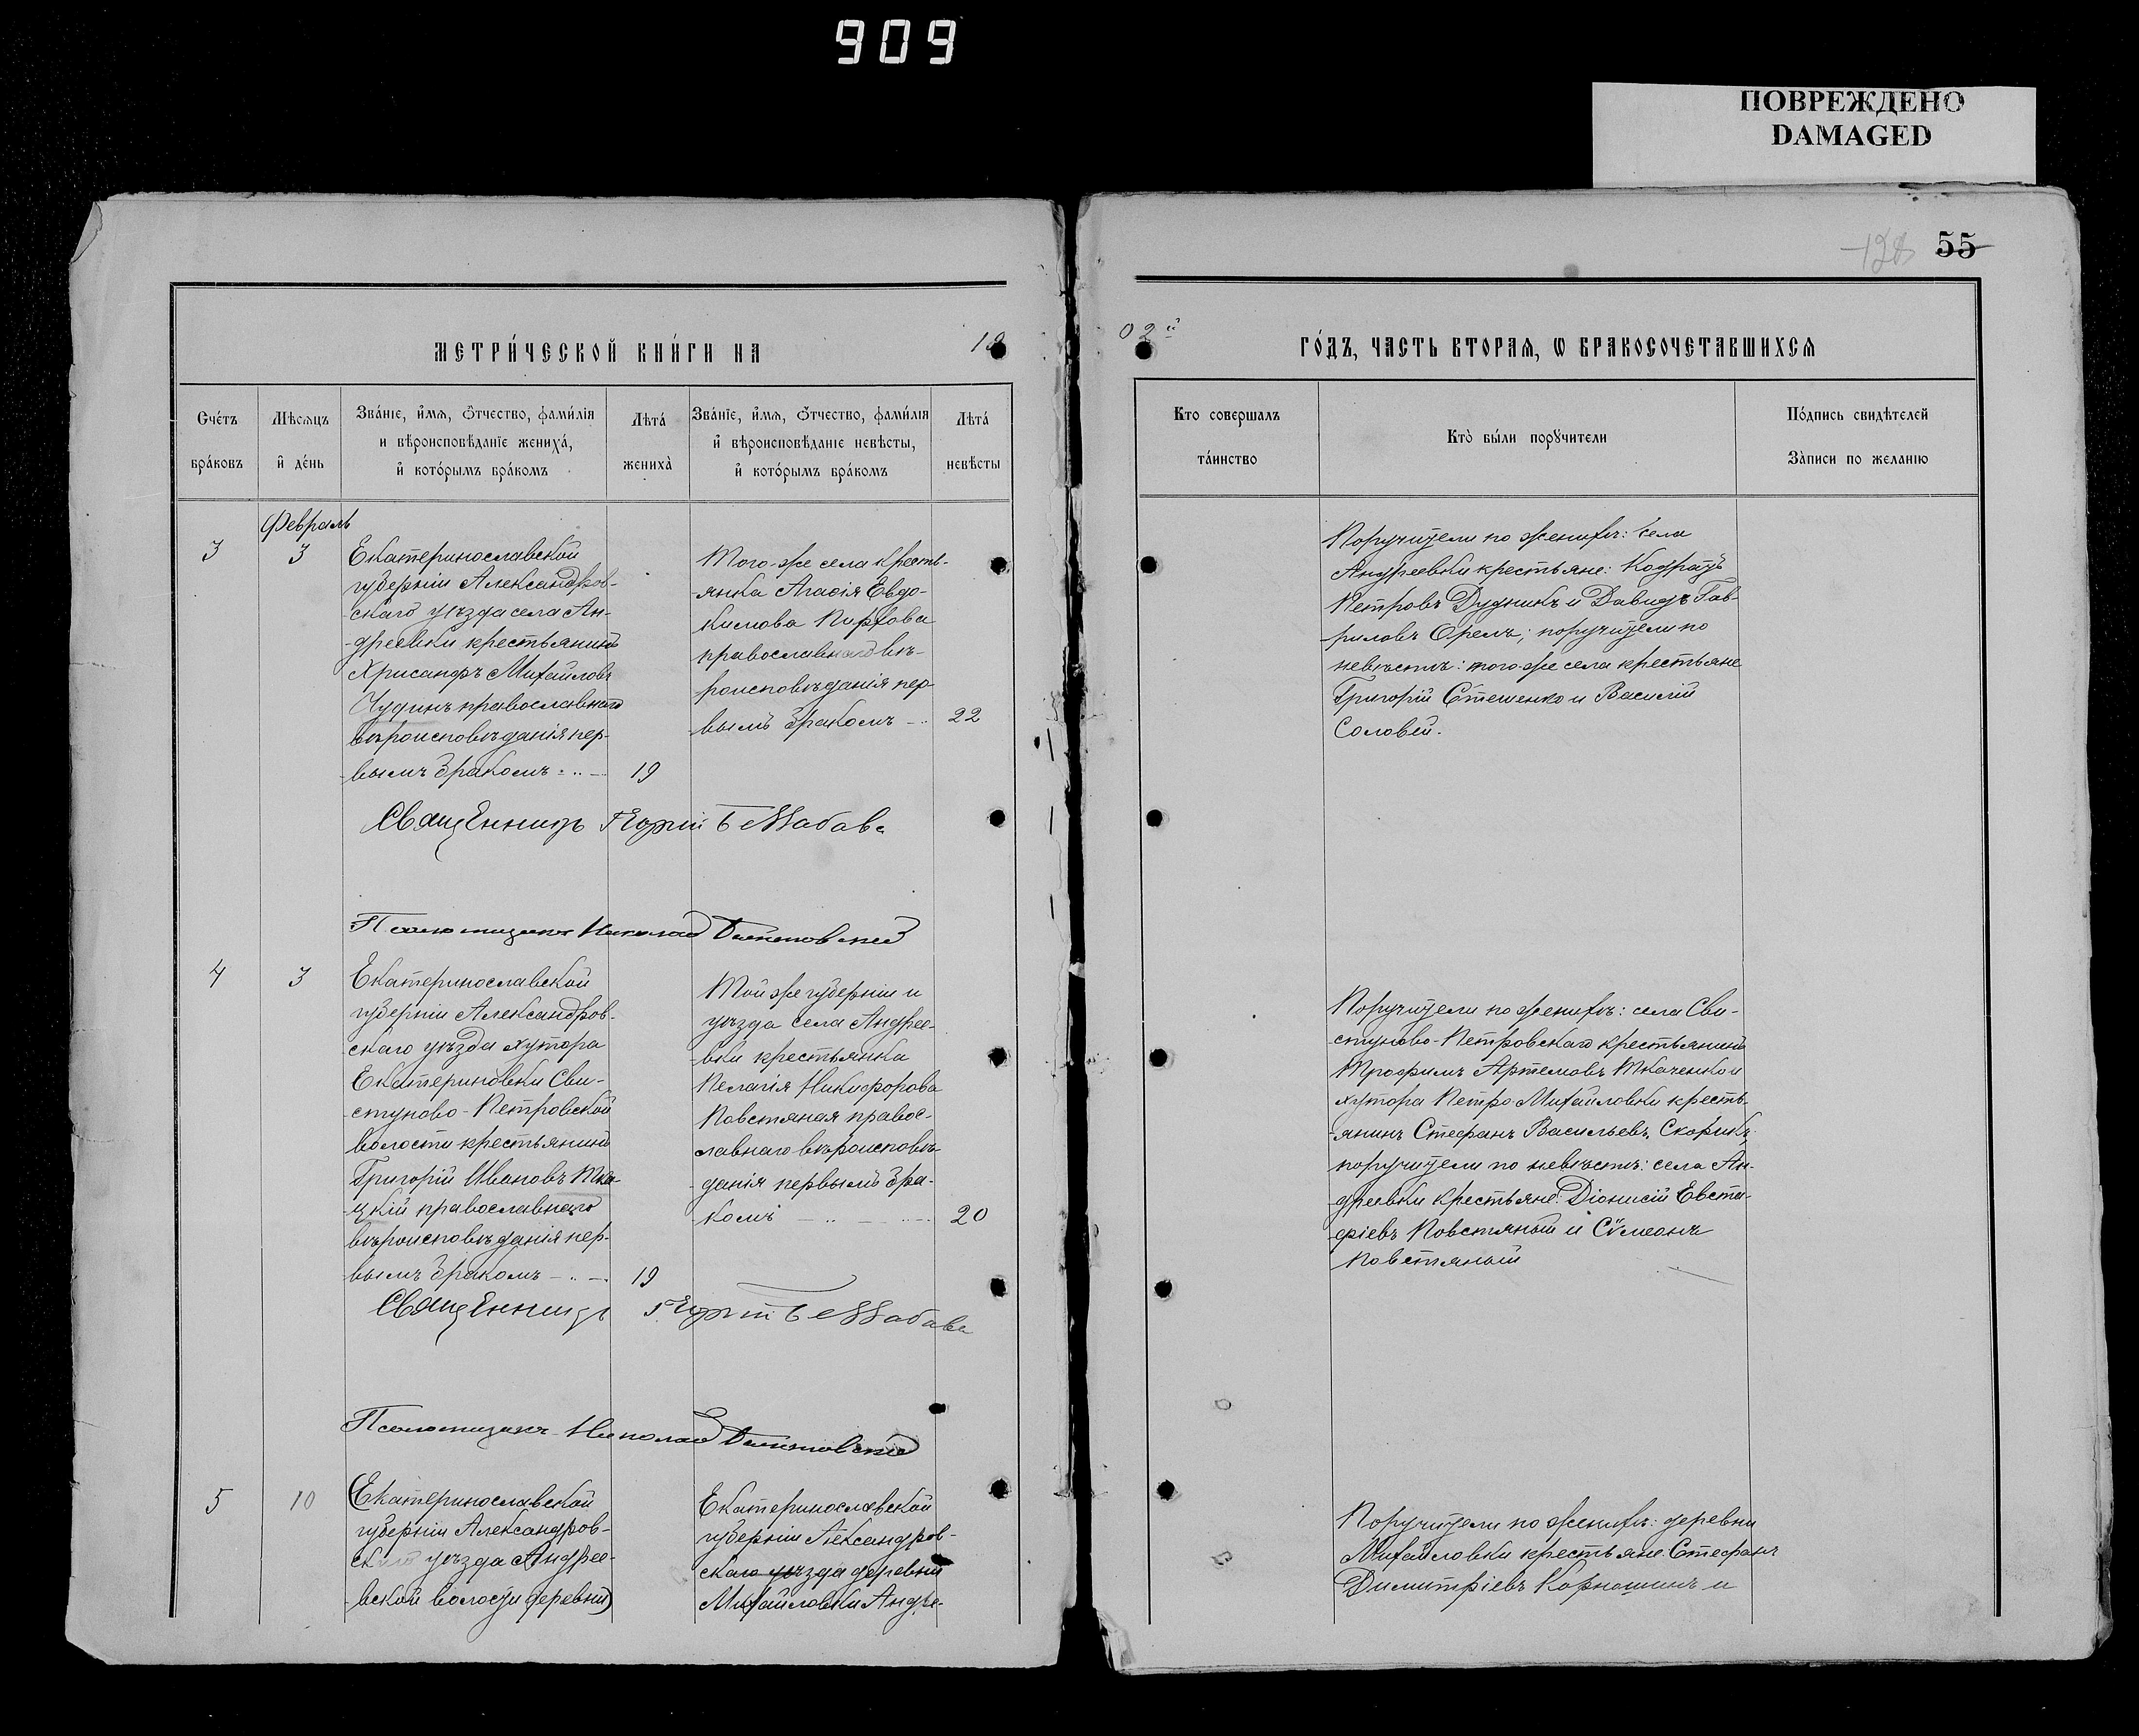 909
ПОВРЕЖДЕНО
DAMAGED
128 55
МЕТРИ́ЧЕСКОЙ КНИ́ГИ НА 19
02й ГО́ДЪ, ЧАСТЬ ВТОРАЯ, Ѡ БРАКОСОЧЕТАВШИХСЯ
Счетъ бра́ковъ
Мѣсяцъ и́ де́нь
Зва́ніе, и́мя, ѻ́тчество, фами́лія
и вѣроисповѣданіе жениха́,
и́ кото́рымъ бра́комъ
Лѣта́ жениха̀
Зва́ніе, и́мя, ѻ́тчество, фами́лія
и́ вѣроисповѣданіе невѣсты,
и́ кото́рымъ бра́комъ
Лѣта́ невѣсты
Кто совершалъ та́инство
Кто̀ бы́ли порꙋчители
По́дпись свидѣтелей
За̀писи по желанію
Февраль
3
3
Екатеринославской
губерніи Александров-
скаго уѣзда села Ан-
-дреевки крестьянинъ
Хрисанфъ Михайловъ
Чудинъ православнаго
вѣроисповѣданія пер-
-вымъ бракомъ
19
Того-же села кресть-
янка Агафія Евдо-
кимова
православнаго вѣ-
роисповѣданія пер-
вымъ бракомъ
22
Поручители по женихѣ: села
Андреевки крестьяне: Кодратъ
Петровъ Дудникъ и Давидъ Гав-
-риловъ Орелъ; поручители по
невѣстѣ: того-же села крестьяне
Григорій Стешенко и Василій
Соловей.
Священникъ Георгій
Псаломщикъ Николай
4
3
Екатеринославской
губерніи Александров-
скаго уѣзда хутора
Екатериновки Сви-
-стуново-Петровской
волости крестьянинъ
Григорій Ивановъ Тка-
-цкій православнаго
вѣроисповѣданія пер-
вымъ бракомъ
19
Той же губерніи и
уѣзда села Андрее-
-вки крестьянка
Пелагія Никифорова
Повстяная правос-
лавнаго вѣроисповѣ-
-данія первымъ бра-
-комъ
20
Поручители по женихѣ: села Сви-
-стуново-Петровскаго крестьянинъ
Трофимъ Артемовъ Ткаченко и
хутора Петро-Михайловки кресть-
-янинъ Стефанъ Васильевъ Скорикъ,
поручители по невѣстѣ: села Ан-
-дреевки крестьяне: Діонисій Евста-
-фіевъ Повстяный и Сѵмеонъ
Повстяный
Священникъ Георгій
Псаломщикъ Николай
5
10
Екатеринославской
губерніи Александров-
скаго уѣзда Андрее-
-вской волости деревни
Екатеринославской
губерніи Александров-
скаго уѣзда деревни
Михайловки Андре-
Поручители по женихѣ: деревни
Михайловки крестьяне: Стефанъ
Димитріевъ Корнюшинъ и